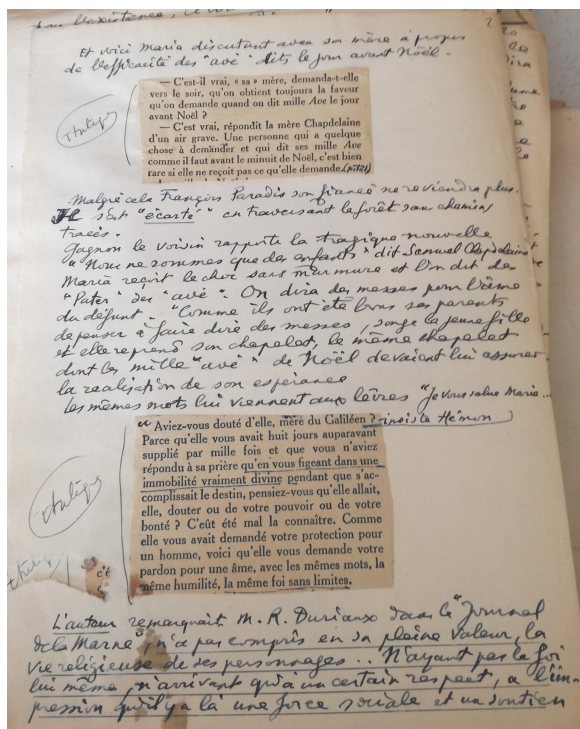 2
Et voici Maria discutant avec sa mère à propos
de l'efficacité des "avé" dits le jour avant Noël.
— C'est-il vrai, « sa » mère, demanda-t-elle
vers le soir, qu'on obtient toujours la faveur
qu'on demande quand on dit mille Ave le jour
avant Noël ?
— C'est vrai, répondit la mère Chapdelaine
d'un air grave. Une personne qui a quelque
chose à demànder et qui dit ses mille Ave
comme il faut avant le minuit de Noël, c'est bien
rare si elle ne reçoit pas ce qu'elle demande.
Malgré cela François Paradis son fiancé ne reviendra plus.
Il s'est "écarté" en traversant la forêt sans chemins
tracés.
Gagnon le voisin rapporte la tragique nouvelle
"Nous ne sommes que des enfants" dit Samuel Chapdelaine
Maria reçoit le choc sans murmure et l'on dit des
"Pater" des "avé". On dira des messes pour l'âme
du défunt. "Comme ils ont été bons ses parents
de penser à faire dire des messes, songe la jeune fille
et elle reprend son chapelet, le même chapelet
dont les mille "avé" de Noël devaient lui assurer
la realisation de son espérance
les mêmes mots lui viennent aux lèvres "Je vous salue Marie...
" Aviez-vous douté d'elle, mère du Galiléen ? - insiste Hémon
Parce qu'elle vous avait huit jours auparavant
supplié par mille fois et que vous n'aviez
répondu à sa prière qu'en vous figeant dans une
immobilité vraiment divine pendant que s'ac-
complissait le destin, pensiez-vous qu'elle allait,
elle, douter ou de votre pouvoir ou de votre
bonté ? C'eût été mal la connaître. Comme
elle vous avait demandé votre protection pour
un homme, voici qu'elle vous demande votre
pardon pour une âme, avec les mêmes mots, la
même humilité, la même foi sans limites.
c'é
L'auteur remarquait M. R. Durianxo dans le "Journal
de la Marne", n'a pas compris en sa pleine valeur, la
vie religieuse de ses personnages .. N'ayant pas la foi
lui même, n'arrivant qu'à un certain respect, a l'im-
pression qu'il y a là une force sociale et un soutien